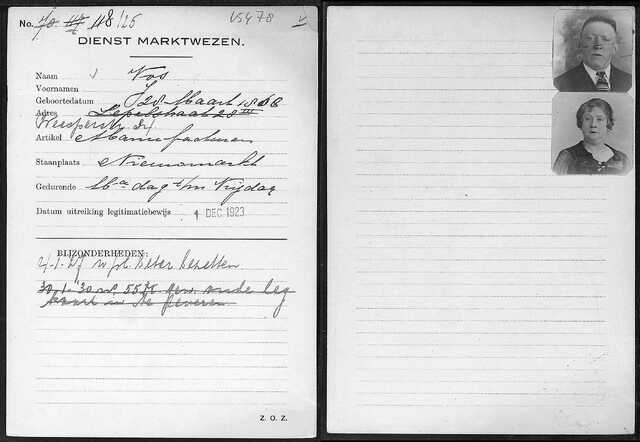 No. 118/25 V5478
DIENST MARKTWEZEN.
Naam Vos
Voornamen J
Geboortedatum 28 Maart 1868
Adres Lepelstraat 28 III
Weesperstr.
Artikel Manufacturen
Staanplaats Nieuwmarkt
Gedurende Maandag t/m Vrijdag
Datum uitreiking legitimatiebewijs 4 DEC. 1923
BIJZONDERHEDEN:
30.1.'30 5578 oude leg
kaart in te leveren
Z. O. Z.